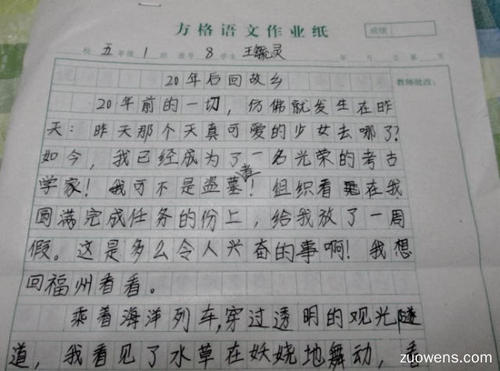 方格语文作业纸
成绩
校 五 年级 1 班 座号 8 学生 王毓灵 年 月 日 第 页
20年后回故乡
教师批改:
20年前的一切,仿佛就发生在昨
天:昨天那个天真可爱的少女去哪了?
如今,我已经成为了一名光荣的考古
学家!我可不是盗墓者!组织看在我
圆满完成任务的份上,给我放了一周
假。这是多么令人兴奋的事啊!我想
回福州看看。
乘着海洋列车,穿过透明的观光隧
道,我看见了水草在妖娆地舞动,看
zuowens.com